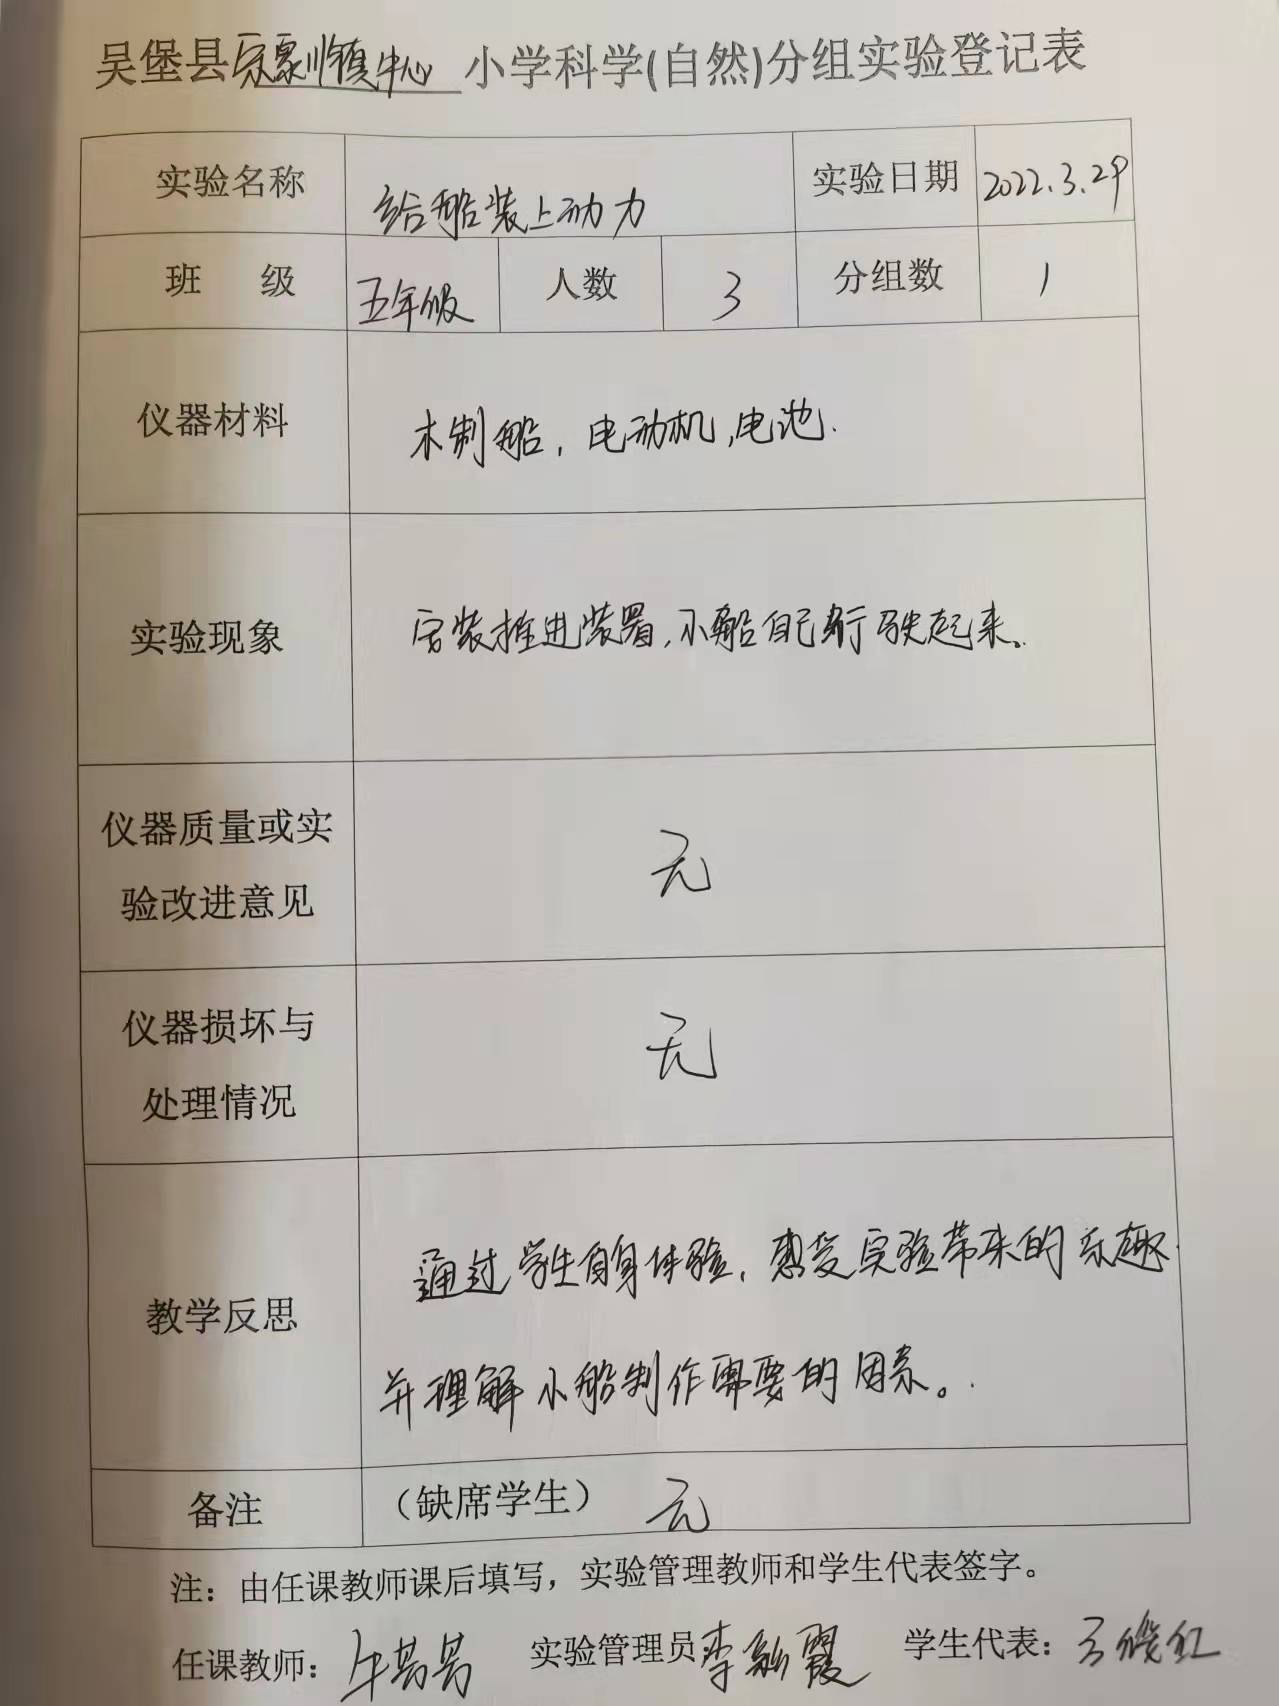 吴堡县宋家川镇中心小学科学(自然)分组实验登记表
实验名称 给船装上动力 实验日期 2022.3.29
班 级 五年级 人数 3 分组数 1
仪器材料 木制船，电动机，电池.
实验现象 安装推进装置，小船自己行驶起来。
仪器质量或实
验改进意见
无
仪器损坏与
处理情况
无
教学反思
通过学生自身体验，感受实验带来的乐趣.
并理解小船制作需要的因素。
备注 （缺席学生） 无
注：由任课教师课后填写，实验管理教师和学生代表签字。
任课教师： 实验管理员：李 霞 学生代表：